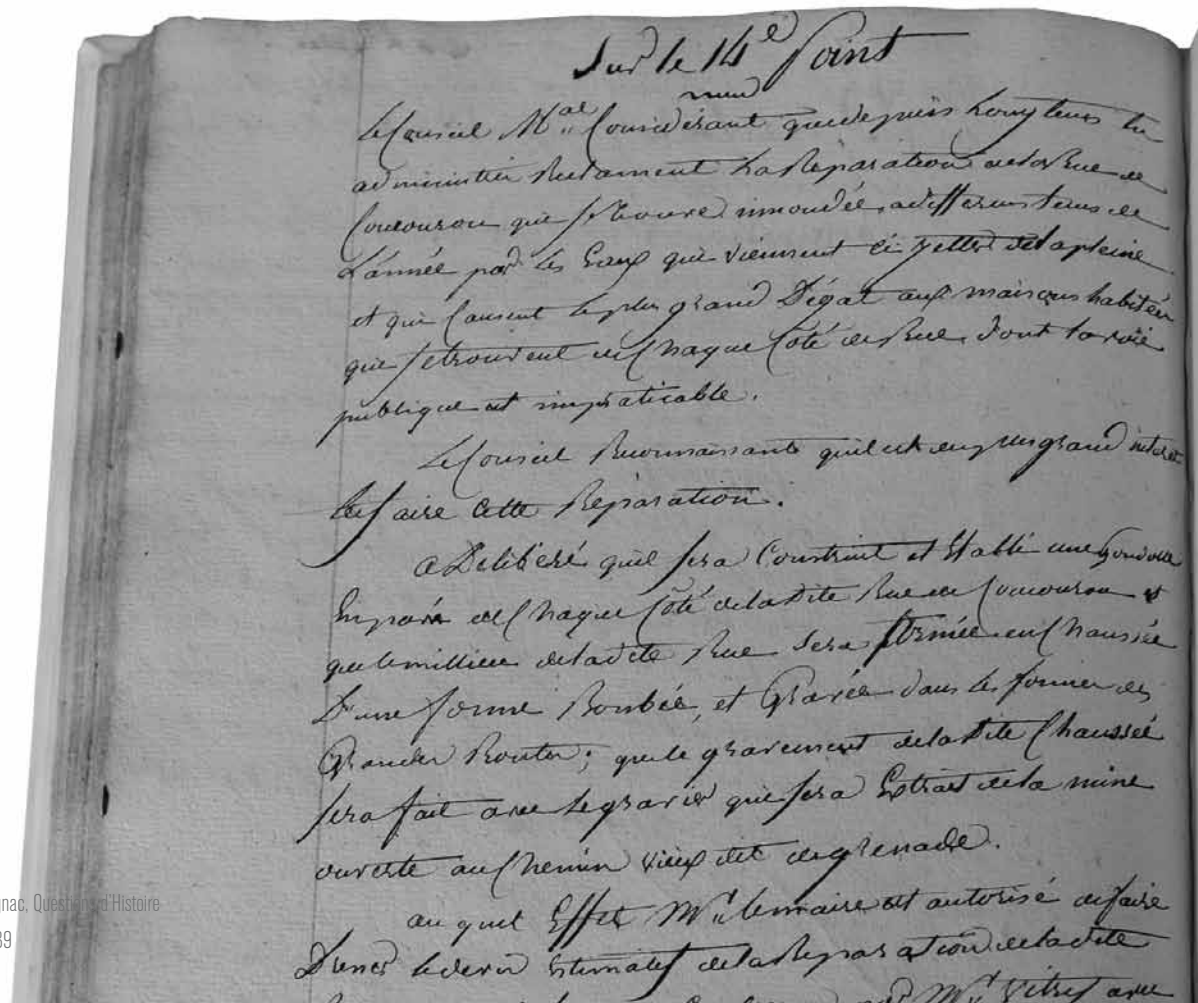 Sur le 14e Point
Le Conseil Mal Considérant que depuis Longtems les
administrés Reclament La Réparation de la Rue de
Coucourou qui se trouve innondée, a differens tems de
L'année par les Eaux qui viennent s'i jetter de la pleine
et qui Causent le plus grand Dégat aux maisons habitées
qui se trouvent de Chaque Coté de Rue, dont la voie
publique est impraticable.
Le Conseil Reconnaissant qu'il est du plus grand interet
de faire Cette Réparation.
a Deliberé qu'il sera Construit et Etabli une Gondole
En pavé de Chaque Coté de la dite Rue de Coucourou et
que le millieu de la dite Rue sera fermée en Chaussée
D'une forme Bombée, et Gravée dans les formes des
Grandes Routes; que le gravement de la dite Chaussée
sera fait avec le gravier qui sera Extrait de la mine
ouverte au Chemin vieux dit de grenade.
au quel Effet Mr le maire est autorisé de faire
Dresser le devis Estimatif de la Réparation de la dite
par Mr Vitry avec
gnac, Questions d'Histoire
39